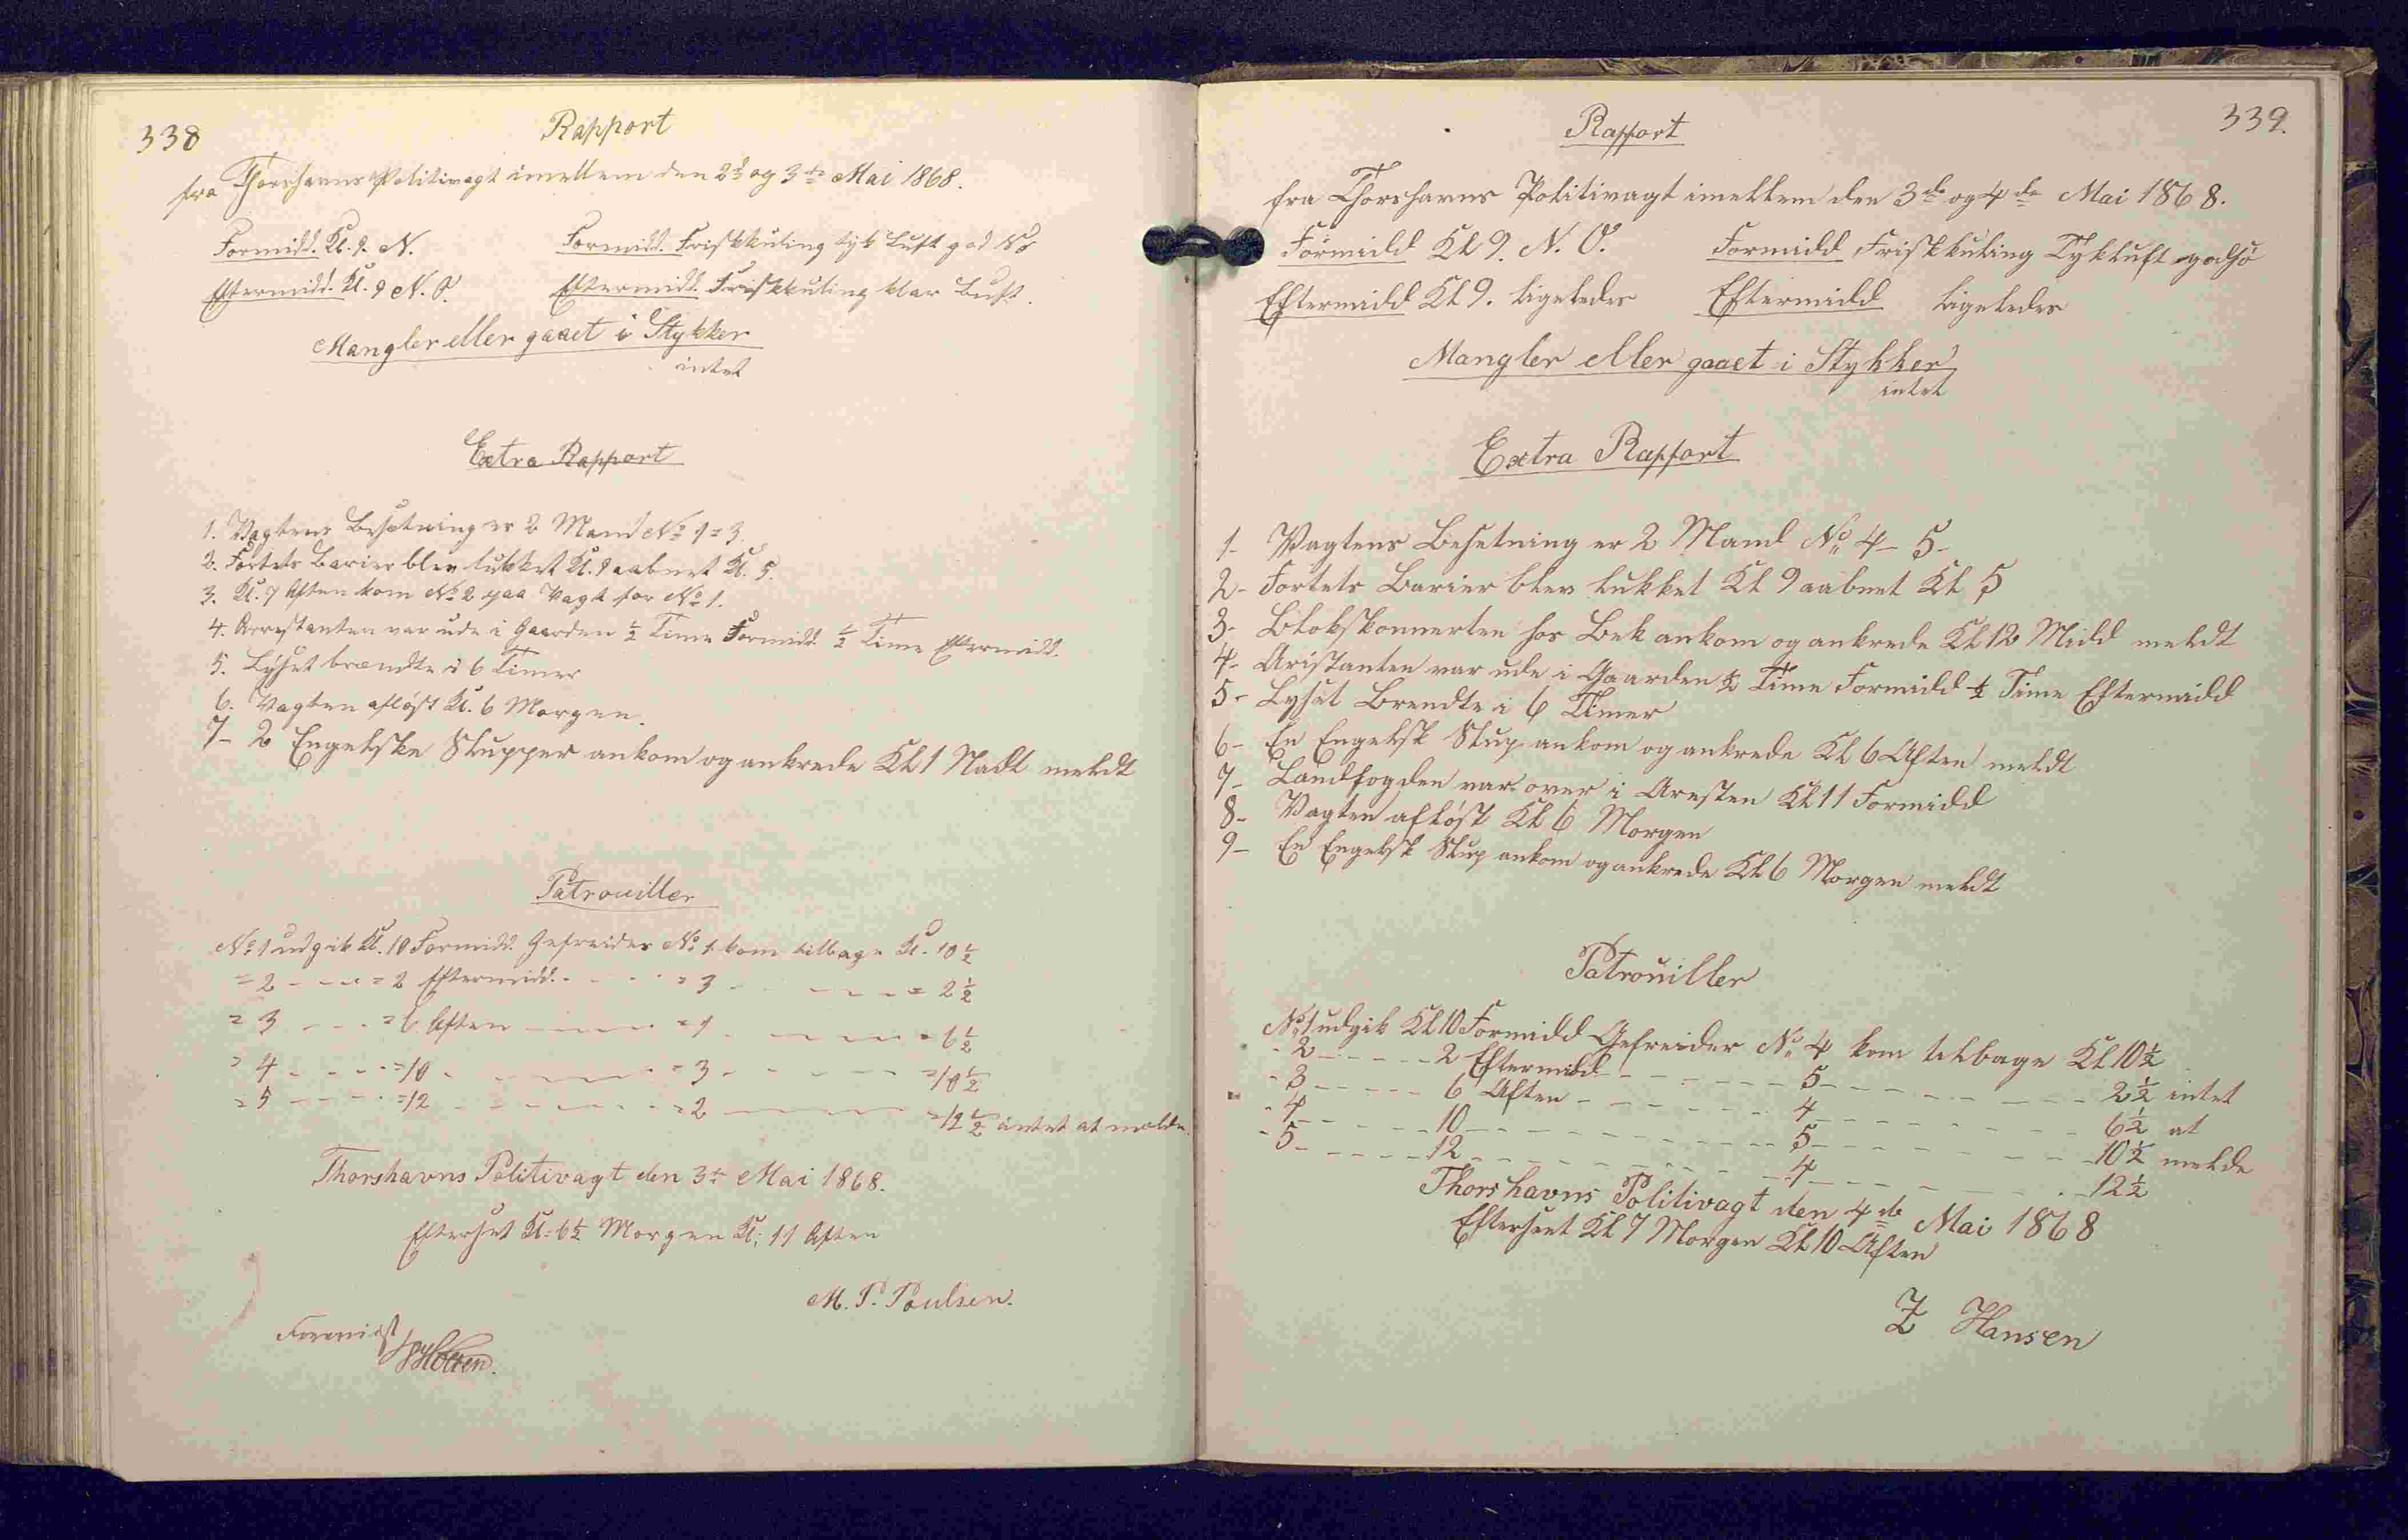 338
Rapport
fra Thorshavns Politivagt imellem den 2d og 3de Mai 1868.
Formidd. Kl. 9. N. Formidd. Friskkuling tyk Luft god Sö
Eftermidd. Kl. 9 N. O. Eftermidd. Friskkuling klar Luft.
Mangler eller gaaet i Stykker
intet
Extra Rapport
1. Vagtens Besetning er 2 Mand No 1 = 3.
2. Fortets Barier blev lukket Kl. 9 aabnet Kl. 5.
3. Kl. 7 Aften kom No 2 paa Vagt for No 1.
4. Arrestanten var ude i Gaarden ½ Time Formidd. ½ Time Eftermidd.
5. Lyset brændte i 6 Timer
6. Vagten aflöst Kl. 6 Morgen.
7- 2 Engelske Slupper ankom og ankrede Kl 1 Nadt meldt
Patrouiller
No 1 udgik Kl. 10 Formidd. Gefreider No 1 kom tilbage Kl. 10½
= 2 - - - = 2 Eftermidd. - - - = 3 - - - - = 2½
= 3 - - - = 6 Aften - - - = 1 - - - - = 6½
= 4 - - - = 10 - - - - = 3 - - - - = 10½
= 5 - - - = 12 - - - - = 2 - - - - = 12½ intet at melde.
Thorshavns Politivagt den 3de Mai 1868.
Efterset Kl: 6½ Morgen Kl: 11 Aften
M. P. Poulsen.
Foreviist
339.
Rapport
fra Thorshavns Politivagt imellem den 3de og 4de Mai 1868.
Formidd Kl 9. N. O. Formidd Friskkuling Tykluft godsö
Eftermidd Kl 9. ligeledes Eftermidd ligeledes
Mangler eller gaaet i Stykker
intet
Extra Rapport
1- Vagtens Besetning er 2 Mand No 4- 5-
2- Fortets Barier blev lukket Kl 9 aabnet Kl 5
3- Blokskonnerten hos Bek ankom og ankrede Kl 12 Midd meldt
4- Aristanten var ude i Gaarden ½ Time Formidd ½ Time Eftermidd
5- Lyset Brendte i 6 Timer
6- En Engelsk Slup ankom og ankrede Kl 6 Aften meldt
7- Landfogden var over i Aresten Kl 11 Formidd
8- Vagten aflöst Kl 6 Morgen
9- En Engelsk Slup ankom og ankrede Kl 6 Morgen meldt
Patrouiller
No 1 udgik Kl 10 Formidd Gefreider No 4 kom tilbage Kl 10½
- 2 - - - - 2 Eftermidd - - - - 5 - - - - 2½ intet
- 3 - - - - 6 Aften - - - - 4 - - - - 6½ at
- 4 - - - - 10 - - - - 5 - - - - 10½ melde
- 5 - - - - 12 - - - - 4 - - - - 12½
Thorshavns Politivagt den 4de Mai 1868
Efterseet Kl 7 Morgen Kl 10 Aften
Z Hansen